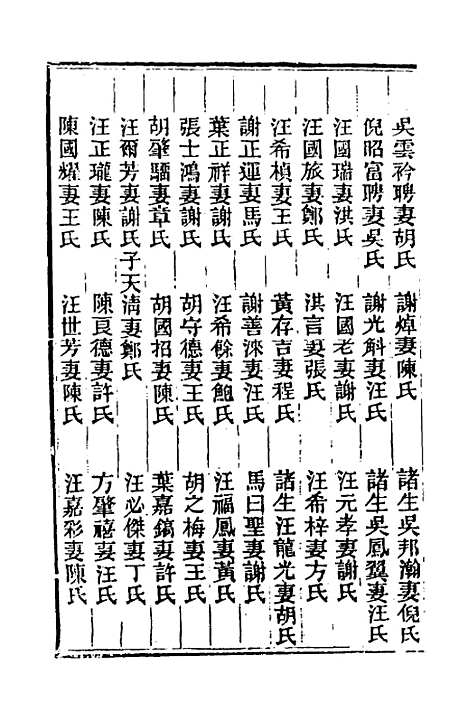 吳雲衿聘妻胡氏　謝焯妻陳氏　諸生吳邦瀚妻倪氏
倪昭富聘妻吳氏　謝光斛妻汪氏　諸生吳鳳翼妻汪氏
汪國瑞妻洪氏　汪國老妻謝氏　汪元孝妻謝氏
汪國旅妻鄭氏　洪言妻張氏　汪希梓妻方氏
汪希楨妻王氏　黃存吉妻程氏　諸生汪龍光妻胡氏
謝正運妻馬氏　謝善淶妻汪氏　馬曰聖妻謝氏
葉正祥妻謝氏　汪希餘妻鮑氏　汪福鳳妻黃氏
張士鴻妻謝氏　胡守德妻王氏　胡之梅妻王氏
胡肇驪妻章氏　胡國招妻陳氏　葉嘉鎬妻許氏
汪爾芳妻謝氏子天清妻鄭氏　汪必傑妻丁氏
汪正瓏妻陳氏　陳良德妻許氏　方肇禧妻汪氏
陳國耀妻王氏　汪世芳妻陳氏　汪嘉彩妻陳氏